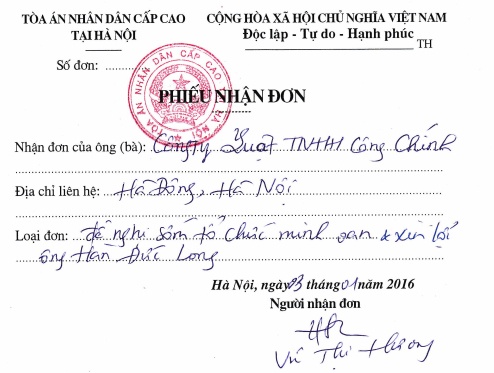 TÒA ÁN NHÂN DÂN CẤP CAO
TẠI HÀ NỘI
CỘNG HÒA XÃ HỘI CHỦ NGHĨA VIỆT NAM
Độc lập - Tự do - Hạnh phúc
TH
Số đơn:
TÒA ÁN NHÂN DÂN CẤP CAO HÀ NỘI
PHIẾU NHẬN ĐƠN
Nhận đơn của ông (bà): Công ty Luật TNHH Công Chính
Địa chỉ liên hệ: Hà Đông, Hà Nội
Loại đơn: đề nghị sớm tổ chức minh oan & xin lỗi
ông Hàn Đức Long
Hà Nội, ngày 03 tháng 01 năm 2016
Người nhận đơn
Vũ Thị Hương